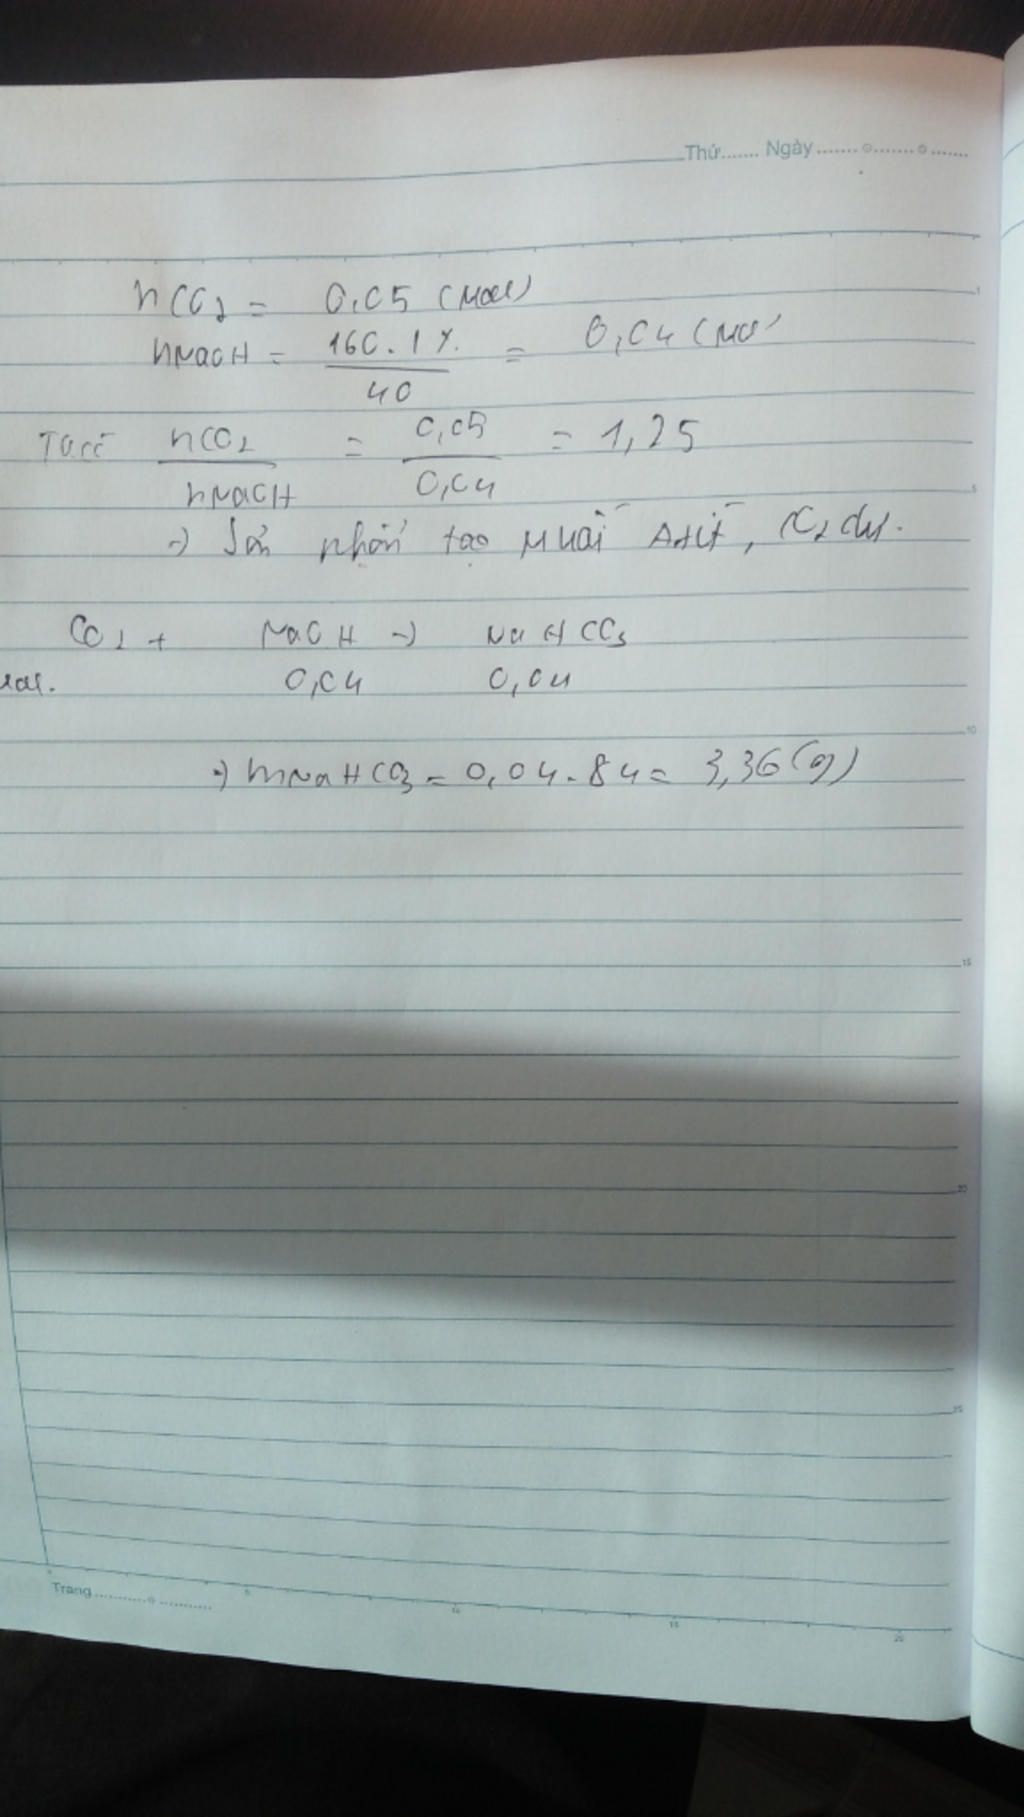 Thứ....... Ngày ....... ....... .......
nCO2 = 0,05 (mol)
nNaOH = 160.1% / 40 = 0,04 (mol
Ta có nCO2 / nNaOH = 0,05 / 0,04 = 1,25
=) Sản tạo muối Axit, CO2 dư.
CO2 + NaOH -) NaHCO3
mol. 0,04 0,04
=) mNaHCO3 = 0,04.84 = 3,36(g)
Trang ........... ...........